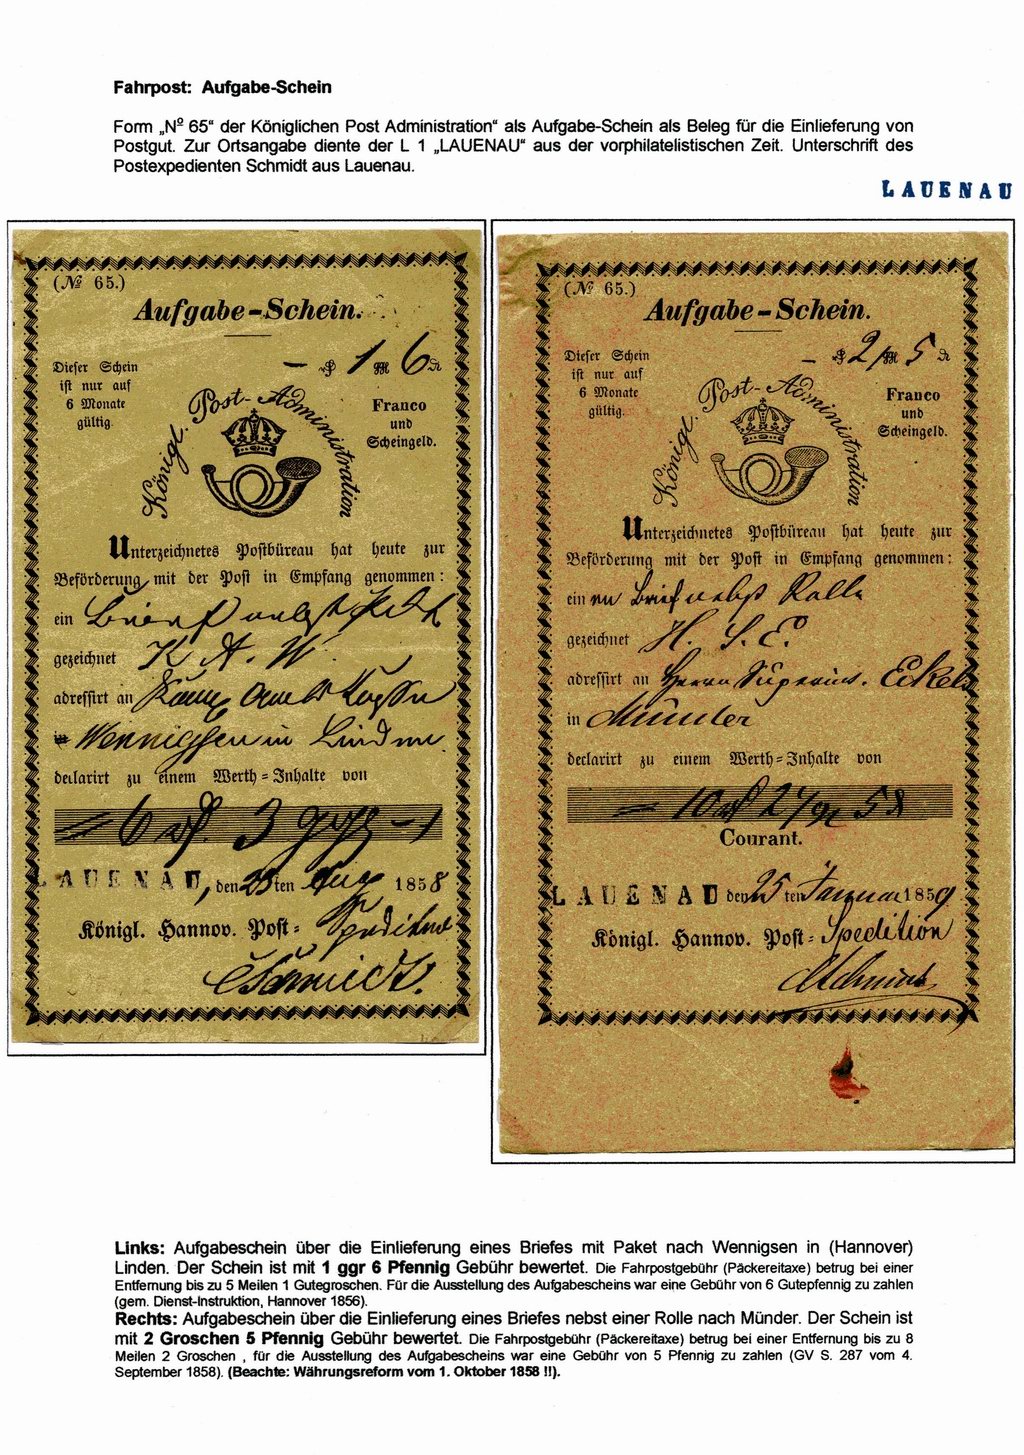 Fahrpost: Aufgabe-Schein
Form „Nº 65" der Königlichen Post Administration" als Aufgabe-Schein als Beleg für die Einlieferung von
Postgut. Zur Ortsangabe diente der L 1 „LAUENAU" aus der vorphilatelistischen Zeit. Unterschrift des
Postexpedienten Schmidt aus Lauenau.
LAUENAU
(Nº 65.)
Aufgabe-Schein.
Dieser Schein
ist nur auf
6 Monate
gültig.
– 1 6
Franco
und
Scheingeld.
Königl. Post-Administration
Unterzeichnetes Postbüreau hat heute zur
Beförderung mit der Post in Empfang genommen:
ein Brief nebst
gezeichnet K. A. W.
adressirt an
in Wennigsen in Linden
declarirt zu einem Werth-Inhalte von
6 3
LAUENAU, den 23ten Aug 1858
Königl. Hannov. Post-Spedition
Schmidt.
(Nº 65.)
Aufgabe-Schein.
Dieser Schein
ist nur auf
6 Monate
gültig.
– 2 5
Franco
und
Scheingeld.
Königl. Post-Administration
Unterzeichnetes Postbüreau hat heute zur
Beförderung mit der Post in Empfang genommen:
ein en Brief nebst Rolle
gezeichnet H. S. E.
adressirt an Herrn Superint. Eckels
in Münder
declarirt zu einem Werth-Inhalte von
= 10 24 5
Courant.
LAUENAU den 25ten Januar 1859
Königl. Hannov. Post-Spedition
Schmidt
Links: Aufgabeschein über die Einlieferung eines Briefes mit Paket nach Wennigsen in (Hannover)
Linden. Der Schein ist mit 1 ggr 6 Pfennig Gebühr bewertet. Die Fahrpostgebühr (Päckereitaxe) betrug bei einer
Entfernung bis zu 5 Meilen 1 Gutegroschen. Für die Ausstellung des Aufgabescheins war eine Gebühr von 6 Gutepfennig zu zahlen
(gem. Dienst-Instruktion, Hannover 1856).
Rechts: Aufgabeschein über die Einlieferung eines Briefes nebst einer Rolle nach Münder. Der Schein ist
mit 2 Groschen 5 Pfennig Gebühr bewertet. Die Fahrpostgebühr (Päckereitaxe) betrug bei einer Entfernung bis zu 8
Meilen 2 Groschen , für die Ausstellung des Aufgabescheins war eine Gebühr von 5 Pfennig zu zahlen (GV S. 287 vom 4.
September 1858). (Beachte: Währungsreform vom 1. Oktober 1858 !!).